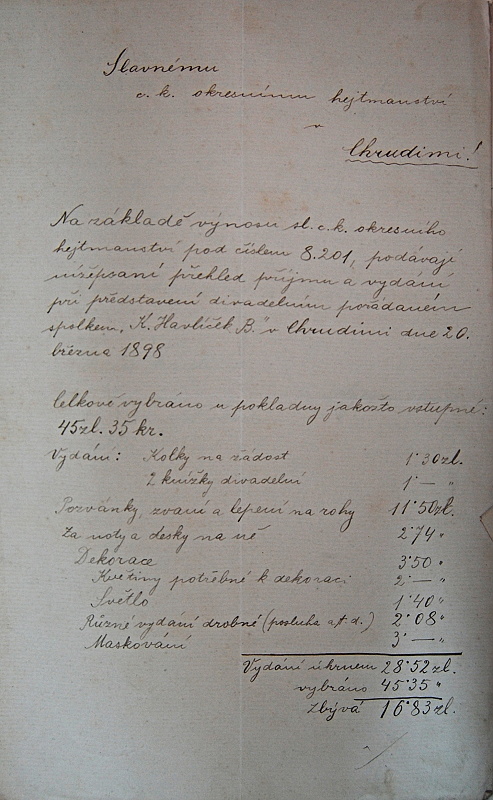 Slavnému
c. k. okresnímu hejtmanství
v
Chrudimi!
Na základě výnosu sl. c. k. okresního
hejtmanství pod číslem 8.201, podávají
nížepsaní přehled příjmu a vydání
při představení divadelním pořádaném
spolkem „K. Havlíček B." v Chrudimi dne 20.
března 1898
Celkově vybráno u pokladny jakožto vstupné:
45zl. 35 kr.
Vydání: Kolky na žádost 1·30zl.
2 knížky divadelní 1·— „
Pozvánky, zvaní a lepení na rohy 11·50zl.
Za noty a desky na ně 2·74 „
Dekorace 3·50 „
Květiny potřebné k dekoraci 2·— „
Světlo 1·40 „
Různé vydání drobné (posluha a.t.d.) 2·08 „
Maskování 3·— „
Vydání úhrnem 28·52zl.
vybráno 45·35 „
Zbývá 16·83zl.